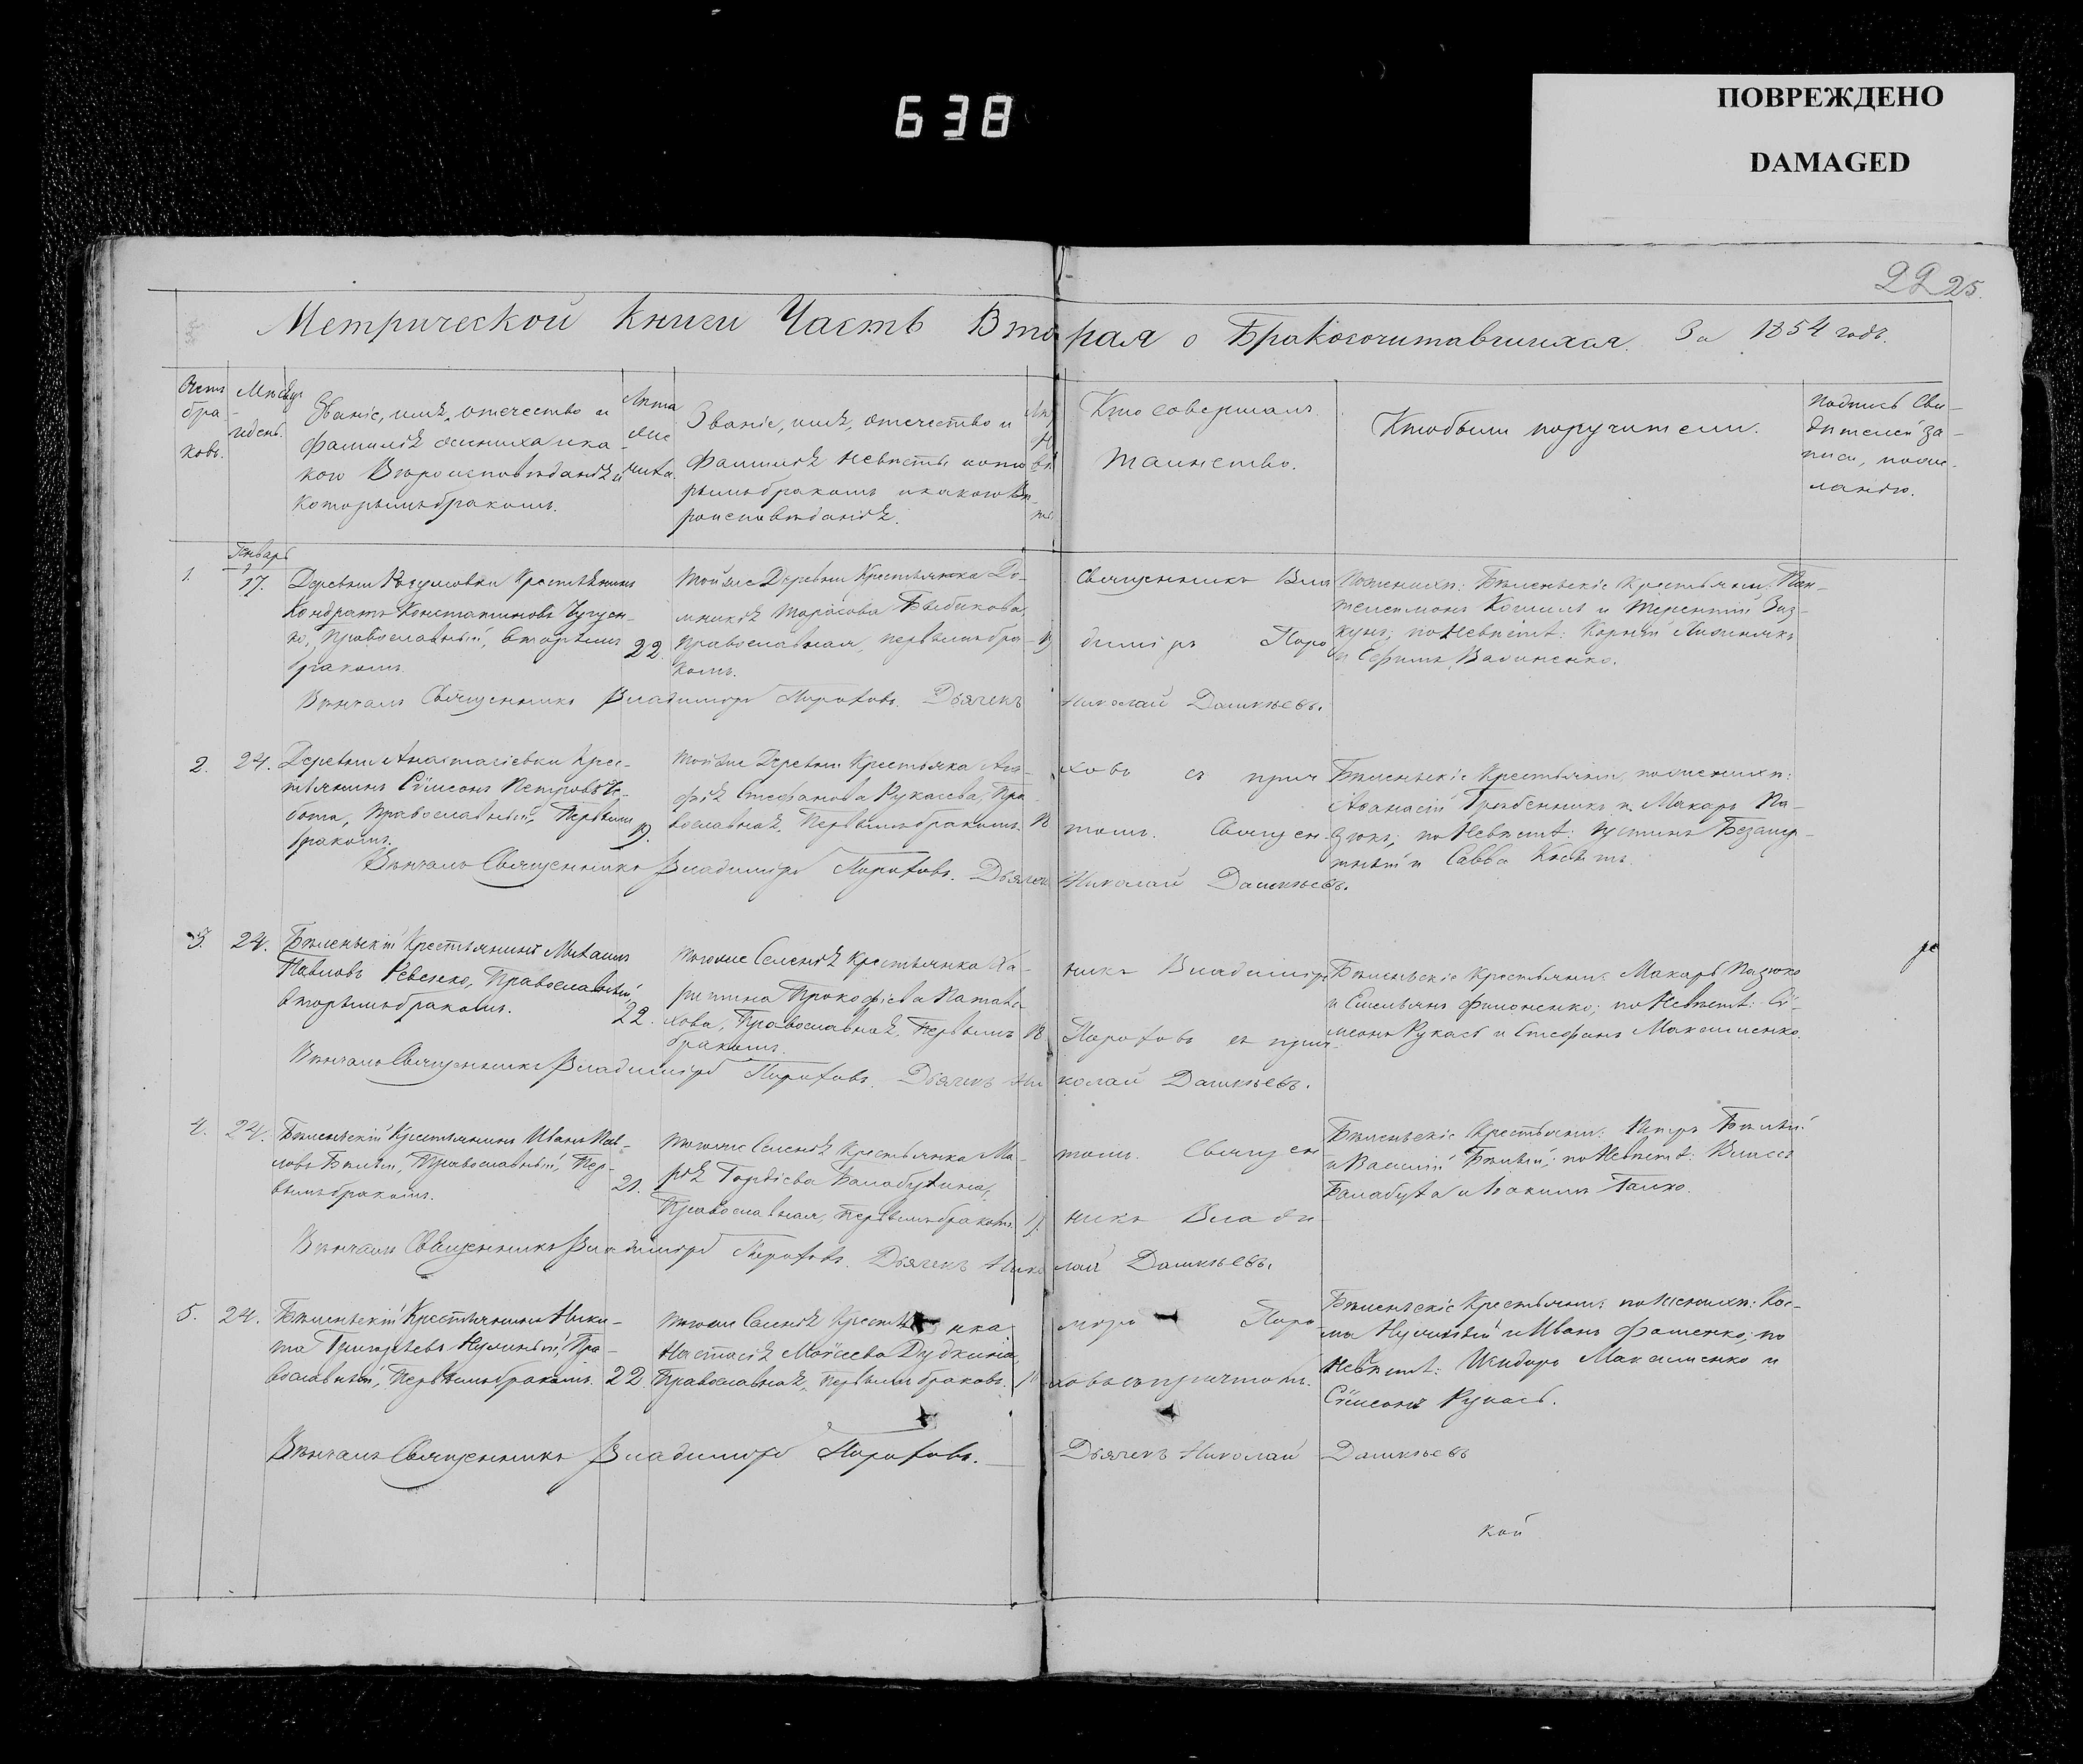 638
ПОВРЕЖДЕНО
DAMAGED
22 25.
Метрической Книги Часть Вторая о Бракосочитавшихся. За 1854 годъ.
Счетъ
бра
ковъ.
Мѣсяцъ
и день.
Званіе, имя, отечество и
фамилія жениха и ка
кого Вѣроисповѣданія и
которымъ бракомъ.
Лѣта
жениха.
Званіе, имя, отечество и
фамилія Невѣсты и кото
рымъ бракомъ и какого Вѣ-
роисповѣданія.
Кто совершалъ
таинство.
Кто были поручители.
подпись Сви-
дѣтелей за-
писи, по же-
ланію.
Январь
1. 17.
Деревни Крестьянинъ
Кондратъ Константиновъ
Православный, вторымъ
бракомъ.
22
Той же Деревни Крестьянка До-
мникія Тарасова
Православная, первымъ бра-
комъ.
Священникъ Вла
диміръ Поро
По женихѣ: Бѣленьскіе Крестьяне Пан-
телеимонъ и Терентій
по Невѣстѣ: Корній
и Ефимъ
Вѣнчалъ Священникъ Владиміръ Пороховъ. Дьячекъ Николай Дашкѣевъ.
2. 24.
Деревни Анастасіевки Крес-
тьянинъ Сѵмеонъ Петровъ Че-
бота, Православный, Первымъ
бракомъ.
19.
Той же Деревни Крестьянка Ага-
фія Стефанова Рукасева, Пра-
вославная, Первымъ бракомъ.
ховъ съ прич
томъ. Священ-
Бѣленьскіе Крестьяне, по женихѣ:
Аѳанасій Гребенникъ и Макаръ Па-
зюкъ; по Невѣстѣ: Устинъ
и Савва
Вѣнчалъ Священникъ Владиміръ Пороховъ. Дьячекъ Николай Дашкѣевъ.
3. 24.
Бѣленьскій Крестьянинъ Михаилъ
Павловъ Ревенко, Православный
вторымъ бракомъ.
22.
Того же Селенія Крестьянка Ха-
ритина Прокофіева
Православная, Первымъ
бракомъ.
18
никъ Владиміръ
Пороховъ съ прич
Бѣленьскіе Крестьяне: Макаръ Пазюкъ
и Емельянъ Филоненко; по Невѣстѣ: Сѵ-
меонъ Рукасъ и Стефанъ Максименко.
Вѣнчалъ Священникъ Владиміръ Пороховъ. Дьячекъ Николай Дашкѣевъ.
4. 24.
Бѣленьскій Крестьянинъ Иванъ Пав-
ловъ Бѣлый, Православный, Пер-
вымъ бракомъ.
21.
Того же Селенія Крестьянка Ма-
рія Гордіева Балабухина,
Православная, первымъ бракомъ.
19.
томъ. Священ
никъ Влади-
Бѣленьскіе Крестьяне: Петръ Бѣлый
и Василій Бѣлый; по Невѣстѣ: Власъ
Балабуха и Іоакимъ
Вѣнчалъ Священникъ Владиміръ Пороховъ. Дьячекъ Николай Дашкѣевъ.
5. 24.
Бѣленьскій Крестьянинъ Ники-
та Григорьевъ Нужный, Пра-
вославный, Первымъ бракомъ.
22.
Того же Селенія Крестьянка
Настасія Моисеева Дудкина,
Православная, первымъ бракомъ.
міръ Поро-
ховъ съ причтомъ.
Бѣленьскіе Крестьяне по женихѣ: Кос-
ма Нужный и Иванъ Фоменко; по
Невѣстѣ: Исидоръ Максименко и
Сѵмеонъ Рукасъ.
Вѣнчалъ Священникъ Владиміръ Пороховъ. Дьячекъ Николай Дашкѣевъ
кой